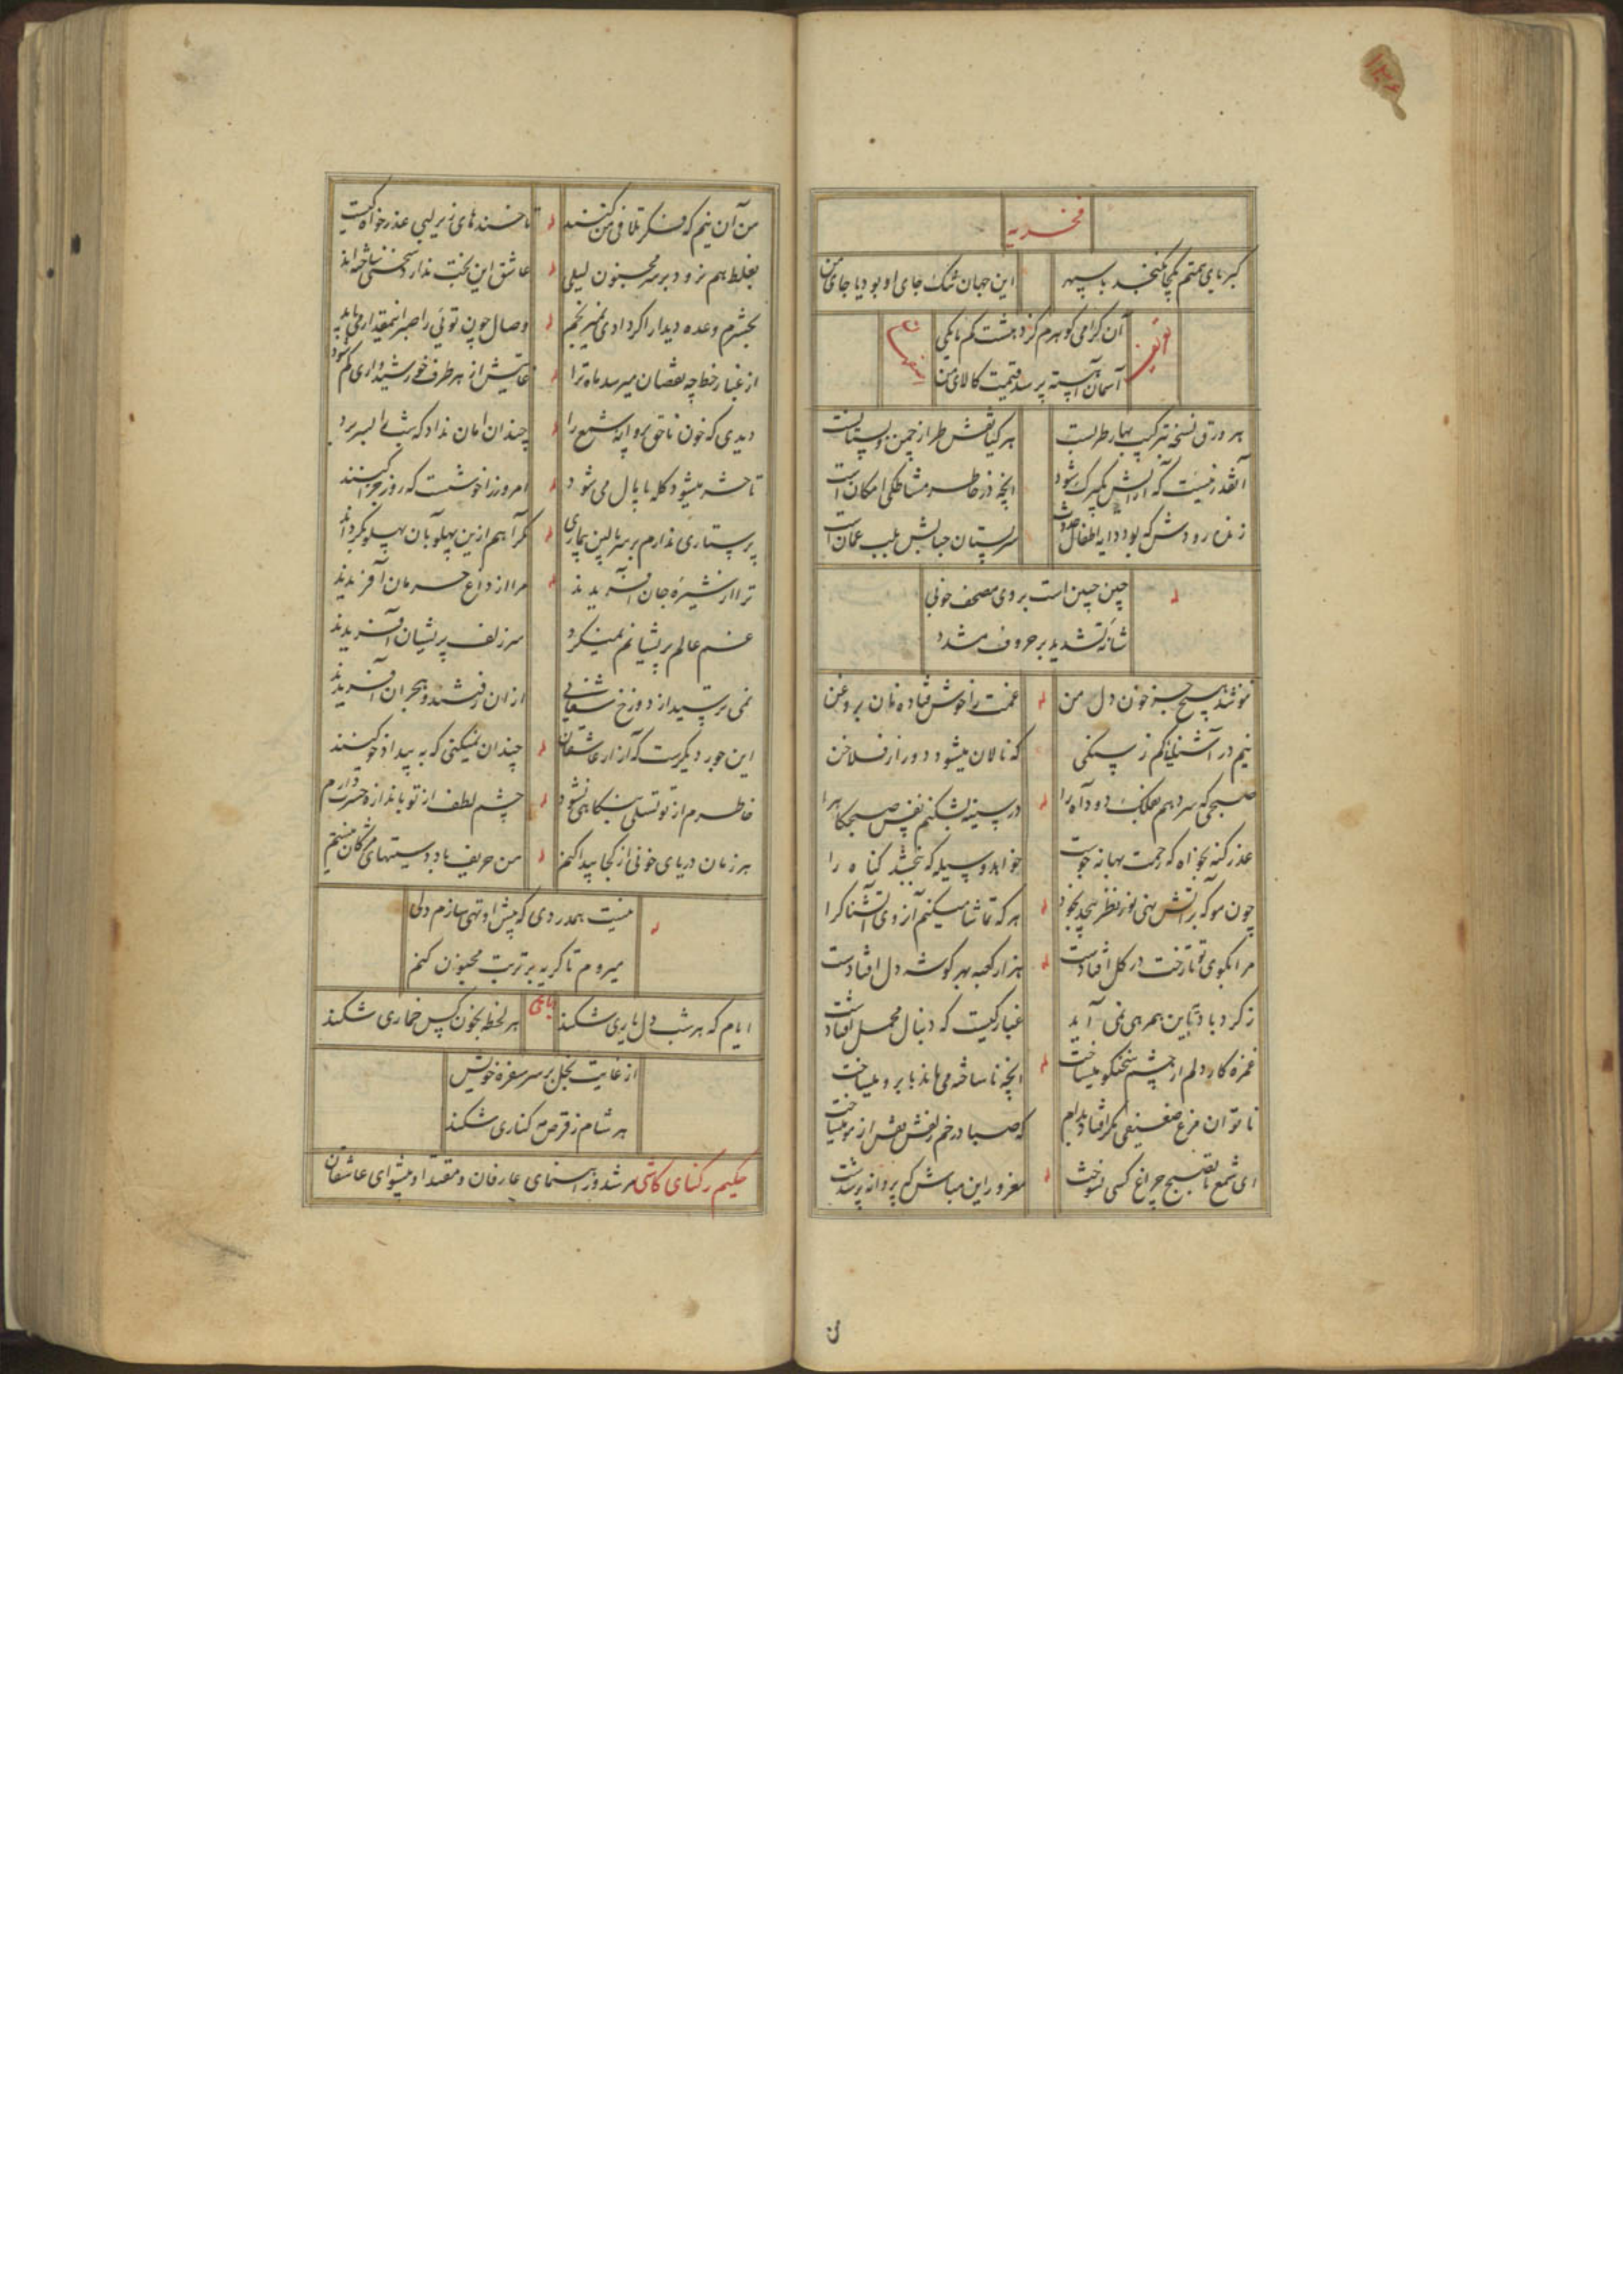 فخریه
کبریای همتم یکجا نگنجد با سپهر
این جهان تنک جای او بود یا جای من
تعریف
آن کرامی کوهرم کز دهشت کم مایکی
آسمان آهسته پرسد قیمت کالای من
هر ورق نسخه ترکیب بهار طربست
هر کیا نقش طراز چمن و بستانست
آنقدر نیست که آرایش یکبرک شود
آنچه در خاطر مشاطکی امکان است
زنده رودش که بود دایه اطفال حدوث
سر پستان حبابش بلب عمان است
چین جبین است بر وی مصحف خوبی
شانه تشدید بر حروف مشدد
ننوشد هیچ جز خون دل من
غمت را خوش فتاده نان بروغن
نیم در آشنائی کم ز سنکی
که نالان میشود دور از فلاخن
صبحی که سر دهم بفلک دود آه را
در سینه بشکنم نفس صبحکاه را
عذر کنه بخواه که رحمت بهانه جوست
خواهد وسیله که ببخشد کناه را
چون مو که بر آتش نهی نور نظر پیچد بخود
هر که تماشا میکنم آن روی آتشناک را
مرا بکوی تو تا رخت در کل افتادست
هزار کعبه بهر کوشه دل افتادست
ز کرد باد تاین همرهی نمی آید
غبار کیست که دنبال محمل افتادست
غمزه کار دلم از چشم سخنکو میساخت
آنچه ناساخته می ماند بابرو میساخت
ناتوان مرغ ضعیفی مکر افتاد بدام
که صبا در خم زلفش نفس از مو میساخت
ای شمع تا بصبح چراغ کسی نسوخت
مغرور این مباش که پروانه پر شدست
من آن نیم که فکر تلافی من کنند
تا خنده های زیر لبی عذر خواه کیست
بغلط هم نرود بر سر مجنون لیلی
عاشق این بخت ندارد سخنی ساخته اند
بحشرم وعده دیدار اکر دادی نمیرنجم
وصال چون توئی را صبر اینمقدار می باید
از غبار خط چه نقصان میرسد ماه ترا
دیدی که خون ناحق پروانه شمع را
چندان امان نداد که شب را بسر برد
تا حشر میشود کله پامال می شود
امروز را خوشست که روز جزا کنند
پرستاری ندارم بر سر بالین بیماری
مکر آهم ازین پهلو بآن پهلو بکرداند
ترا از شیره جان آفریدند
مرا از داغ حرمان آفریدند
غم عالم پریشانم نمیکرد
سر زلف پریشان آفریدند
نمی ترسید از دوزخ شفائی
از آن رفتند و هجران آفریدند
این جور دیکرست که آزار عاشقان
چندان نمیکنی که به بیداد خو کنند
خاطرم از تو تسلی بنکاهی نشود
چشم لطف از تو باندازه حسرت دارم
هر زمان دریای خونی از کجا پیدا کنم
من حریف باد دستیهای مژکان نیستم
نیست همدردی که پیش او تهی سازم دلی
میروم تا کریه بر تربت مجنون کنم
رباعی
ایام که هر شب دل یاری شکند
هر لحظه بخون کس خماری شکند
از غایت بخل بر سر سفره خویش
هر شام ز قرص مه کناری شکند
حکیم رکنای کاشی مرشد و رهنمای عارفان و مقتدا و پیشوای عاشقان